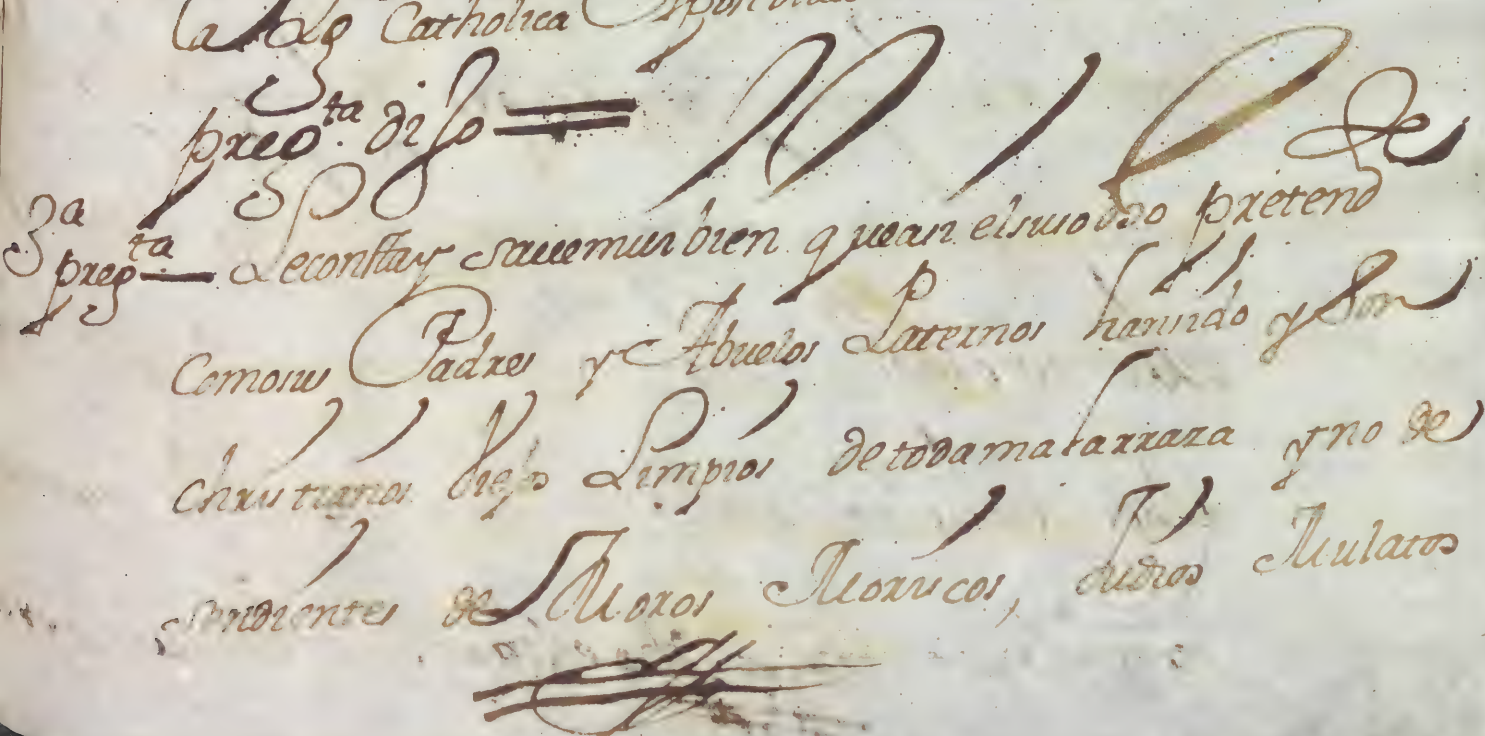 la Fe Catholica
preg.ta dijo =
3a preg.ta Le consta y save mui bien q̃ tan el susodho pretend
Como sus Padres y Abuelos Paternos han sido y son
Christianos viejos Limpios de toda mala rraza y no des
sendientes de Moros Moriscos, Judios Mulatos